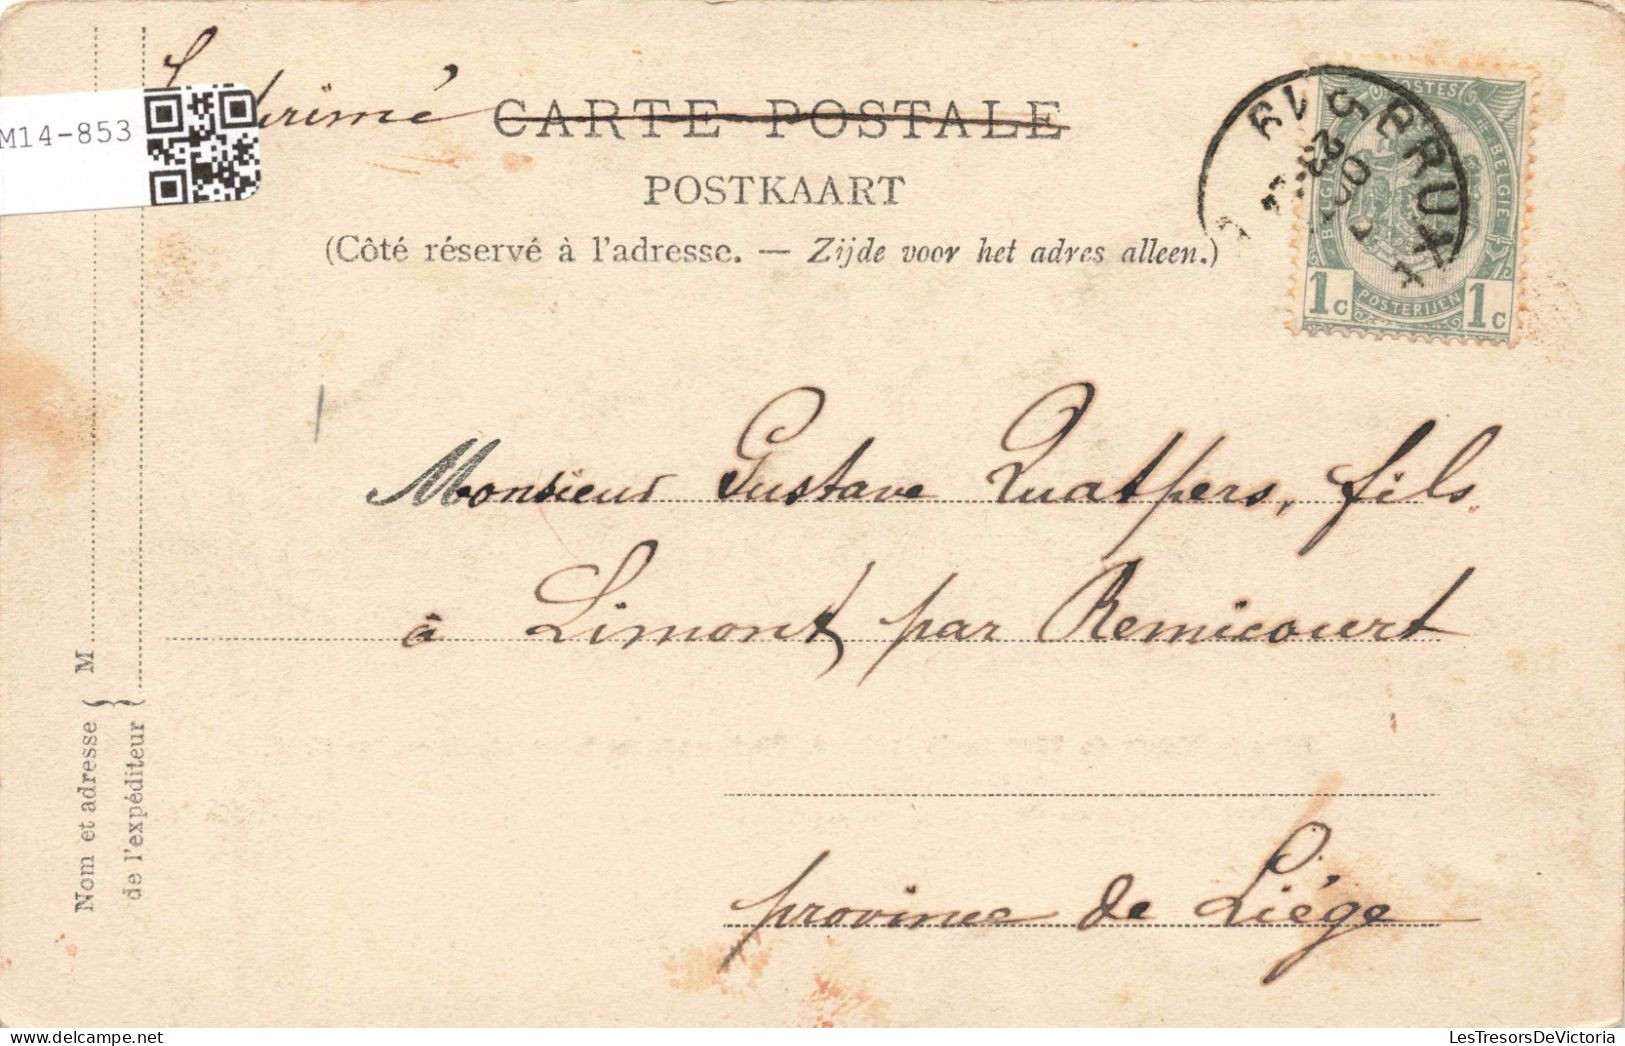 M14-853
CARTE POSTALE
POSTKAART
(Côté réservé à l'adresse. — Zijde voor het adres alleen.)
POSTES
BELGIQUE
BELGIE
1c POSTERIJEN 1c
BRUX
Monsieur Gustave Quatpers, fils.
à Limont par Remicourt
province de Liége
Nom et adresse M
de l'expéditeur
LesTresorsDeVictoria